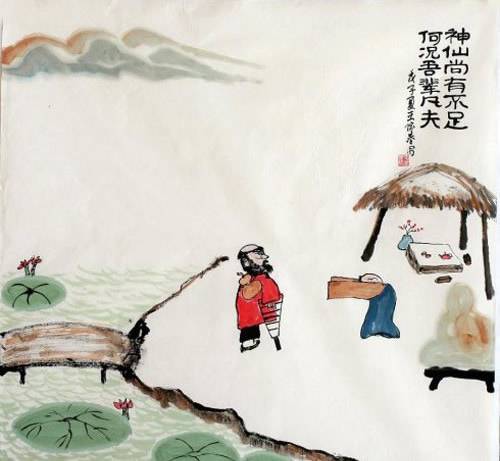 神仙尚有不足
何况吾輩凡夫
戊子夏王